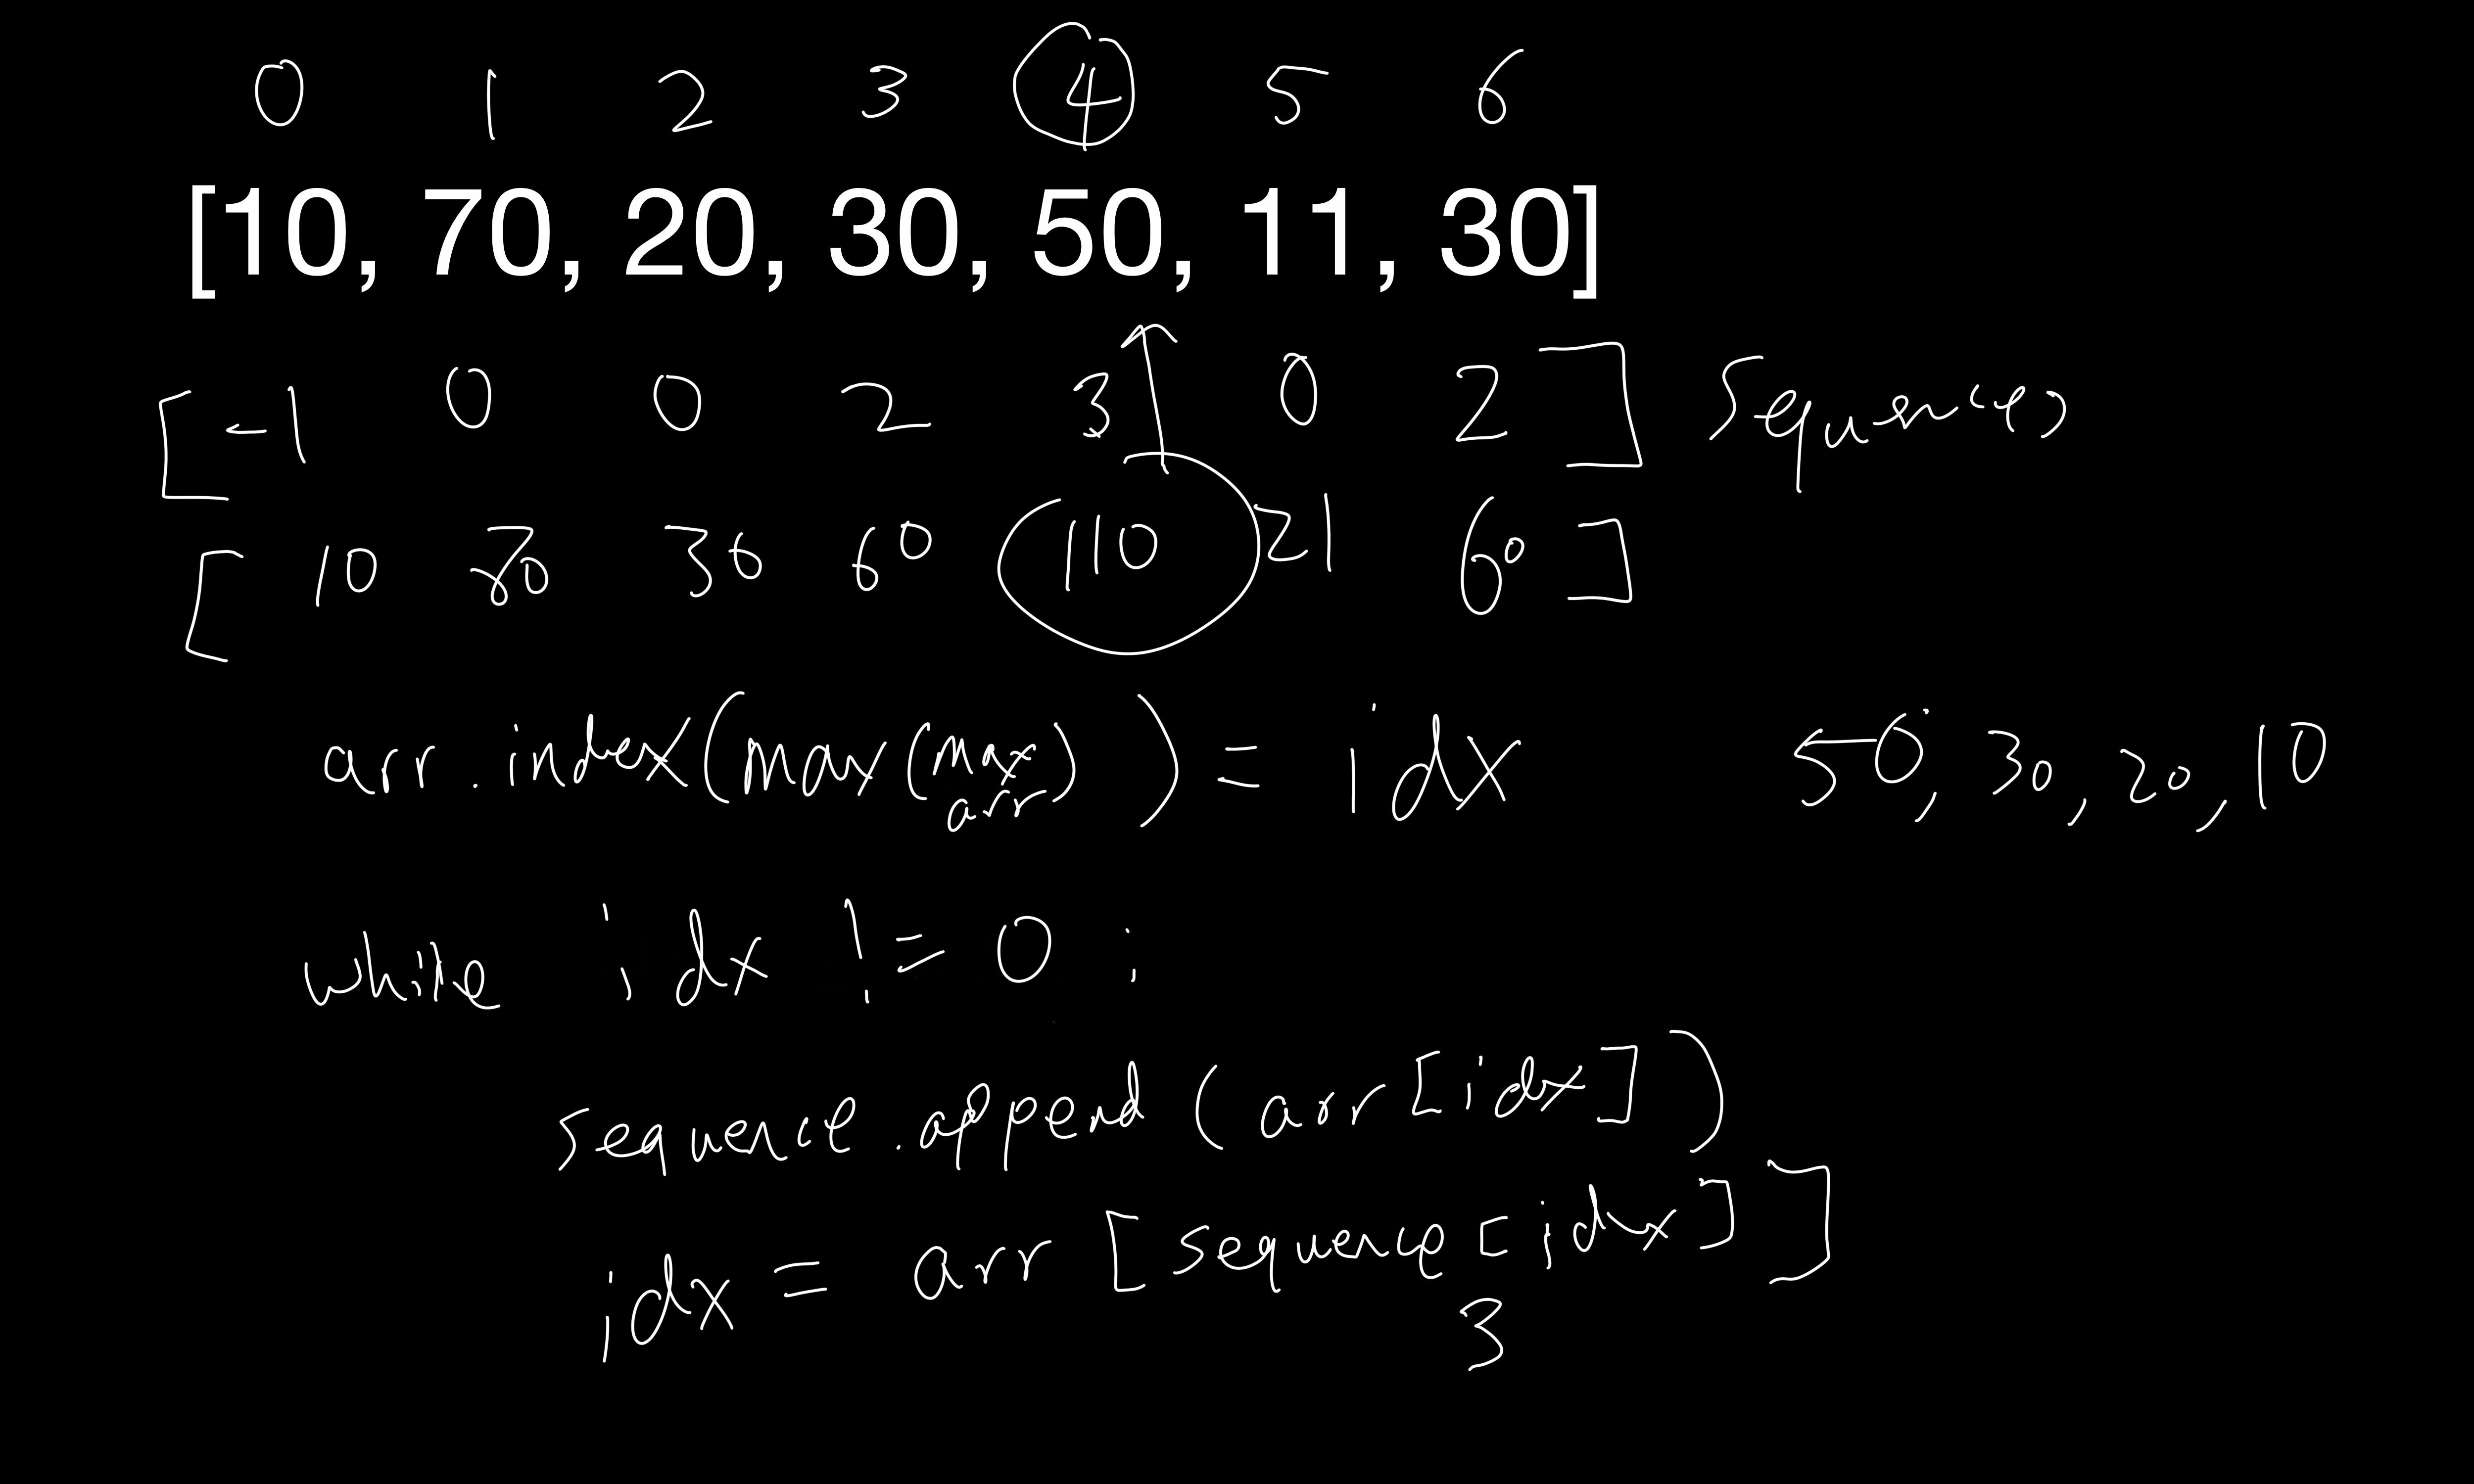 0 1 2 3 4 5 6
[10, 70, 20, 30, 50, 11, 30]
[ -1 0 0 2 3 0 2 ] sequences
[ 10 80 30 60 110 21 60 ]
arr.index(max(max arr)) = idx 50, 30, 20, 10
while idx != 0 :
sequence.append(arr[idx])
idx = arr[sequence[idx]]
3